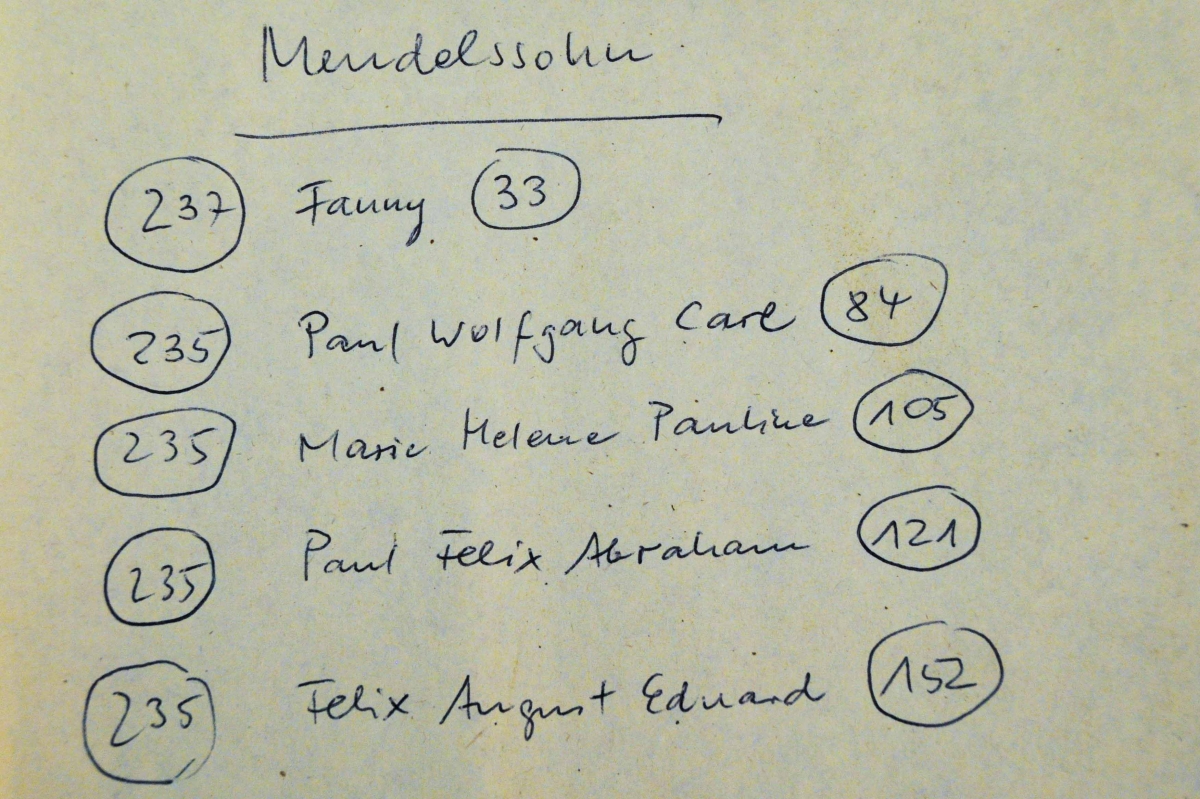 Mendelssohn
237 Fanny 33
235 Paul Wolfgang Carl 84
235 Marie Helene Pauline 105
235 Paul Felix Abraham 121
235 Felix August Eduard 152